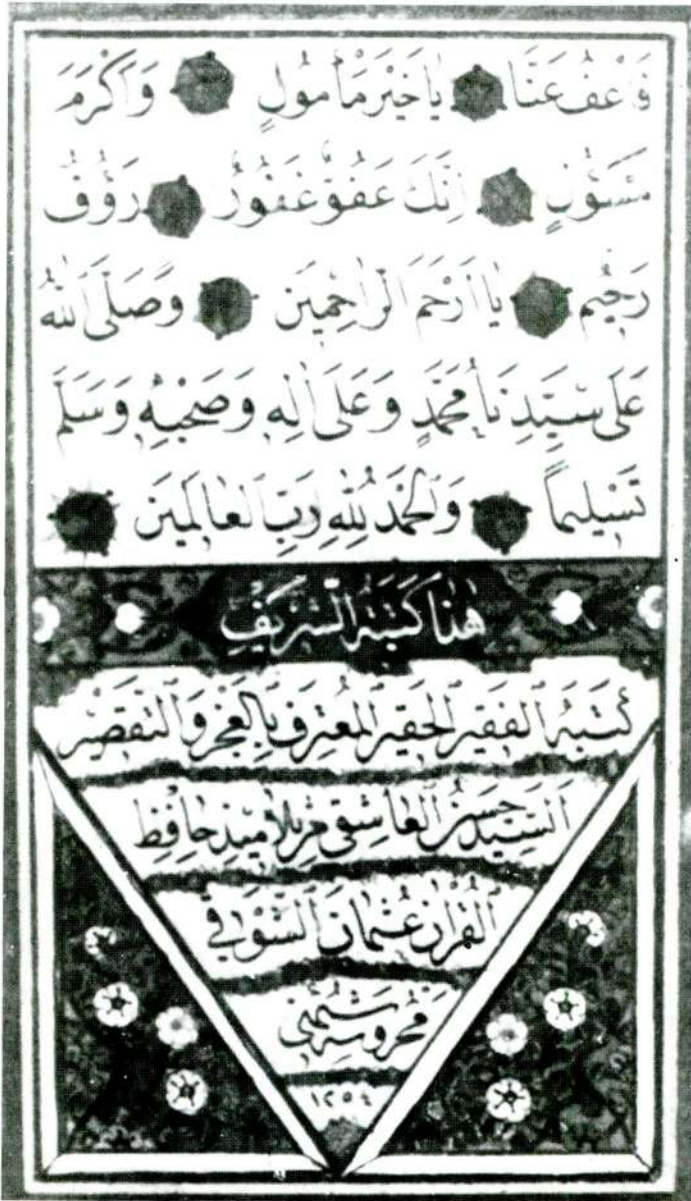 فَاعْفُ عَنَّا يَا خَيْرَ مَأْمُولٍ وَاَكْرَمَ
مَسْؤُلٍ اِنَّكَ عَفُوٌّ غَفُورٌ رَؤُفٌ
رَحِيمٌ يَا اَرْحَمَ الرَّاحِمِينَ وَصَلَّى اللّٰهُ
عَلَى سَيِّدِنَا مُحَمَّدٍ وَعَلَى اٰلِهِ وَصَحْبِهِ وَسَلَّمَ
تَسْلِيمًا وَالْحَمْدُ لِلّٰهِ رَبِّ الْعَالَمِينَ
هٰذَا كَتَبَهُ الشَّرِيفُ
كَتَبَهُ الْفَقِيرُ الْحَقِيرُ الْمُعْتَرِفُ بِالْعَجْزِ وَالتَّقْصِيرِ
اَلسَّيِّدْ حَسَنُ الْعَاشِقِى مِنْ تَلَامِيذِ حَافِظِ
الْقُرْاٰنِ عُثْمَانَ
مَحْرُوسَهِ شُمْنِى
١٢٥٤